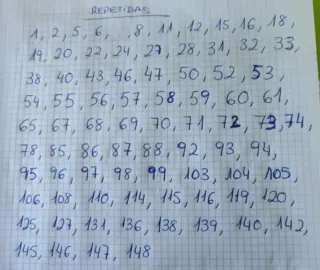 REPETIDAS
1, 2, 5, 6, , 8, 11, 12, 15, 16, 18,
19, 20, 22, 24, 27, 28, 31, 32, 33,
38, 40, 43, 46, 47, 50, 52, 53,
54, 55, 56, 57, 58, 59, 60, 61,
65, 67, 68, 69, 70, 71, 72, 73, 74,
78, 85, 86, 87, 88, 92, 93, 94,
95, 96, 97, 98, 99, 103, 104, 105,
106, 108, 110, 114, 115, 116, 119, 120,
125, 127, 131, 136, 138, 139, 140, 142,
145, 146, 147, 148